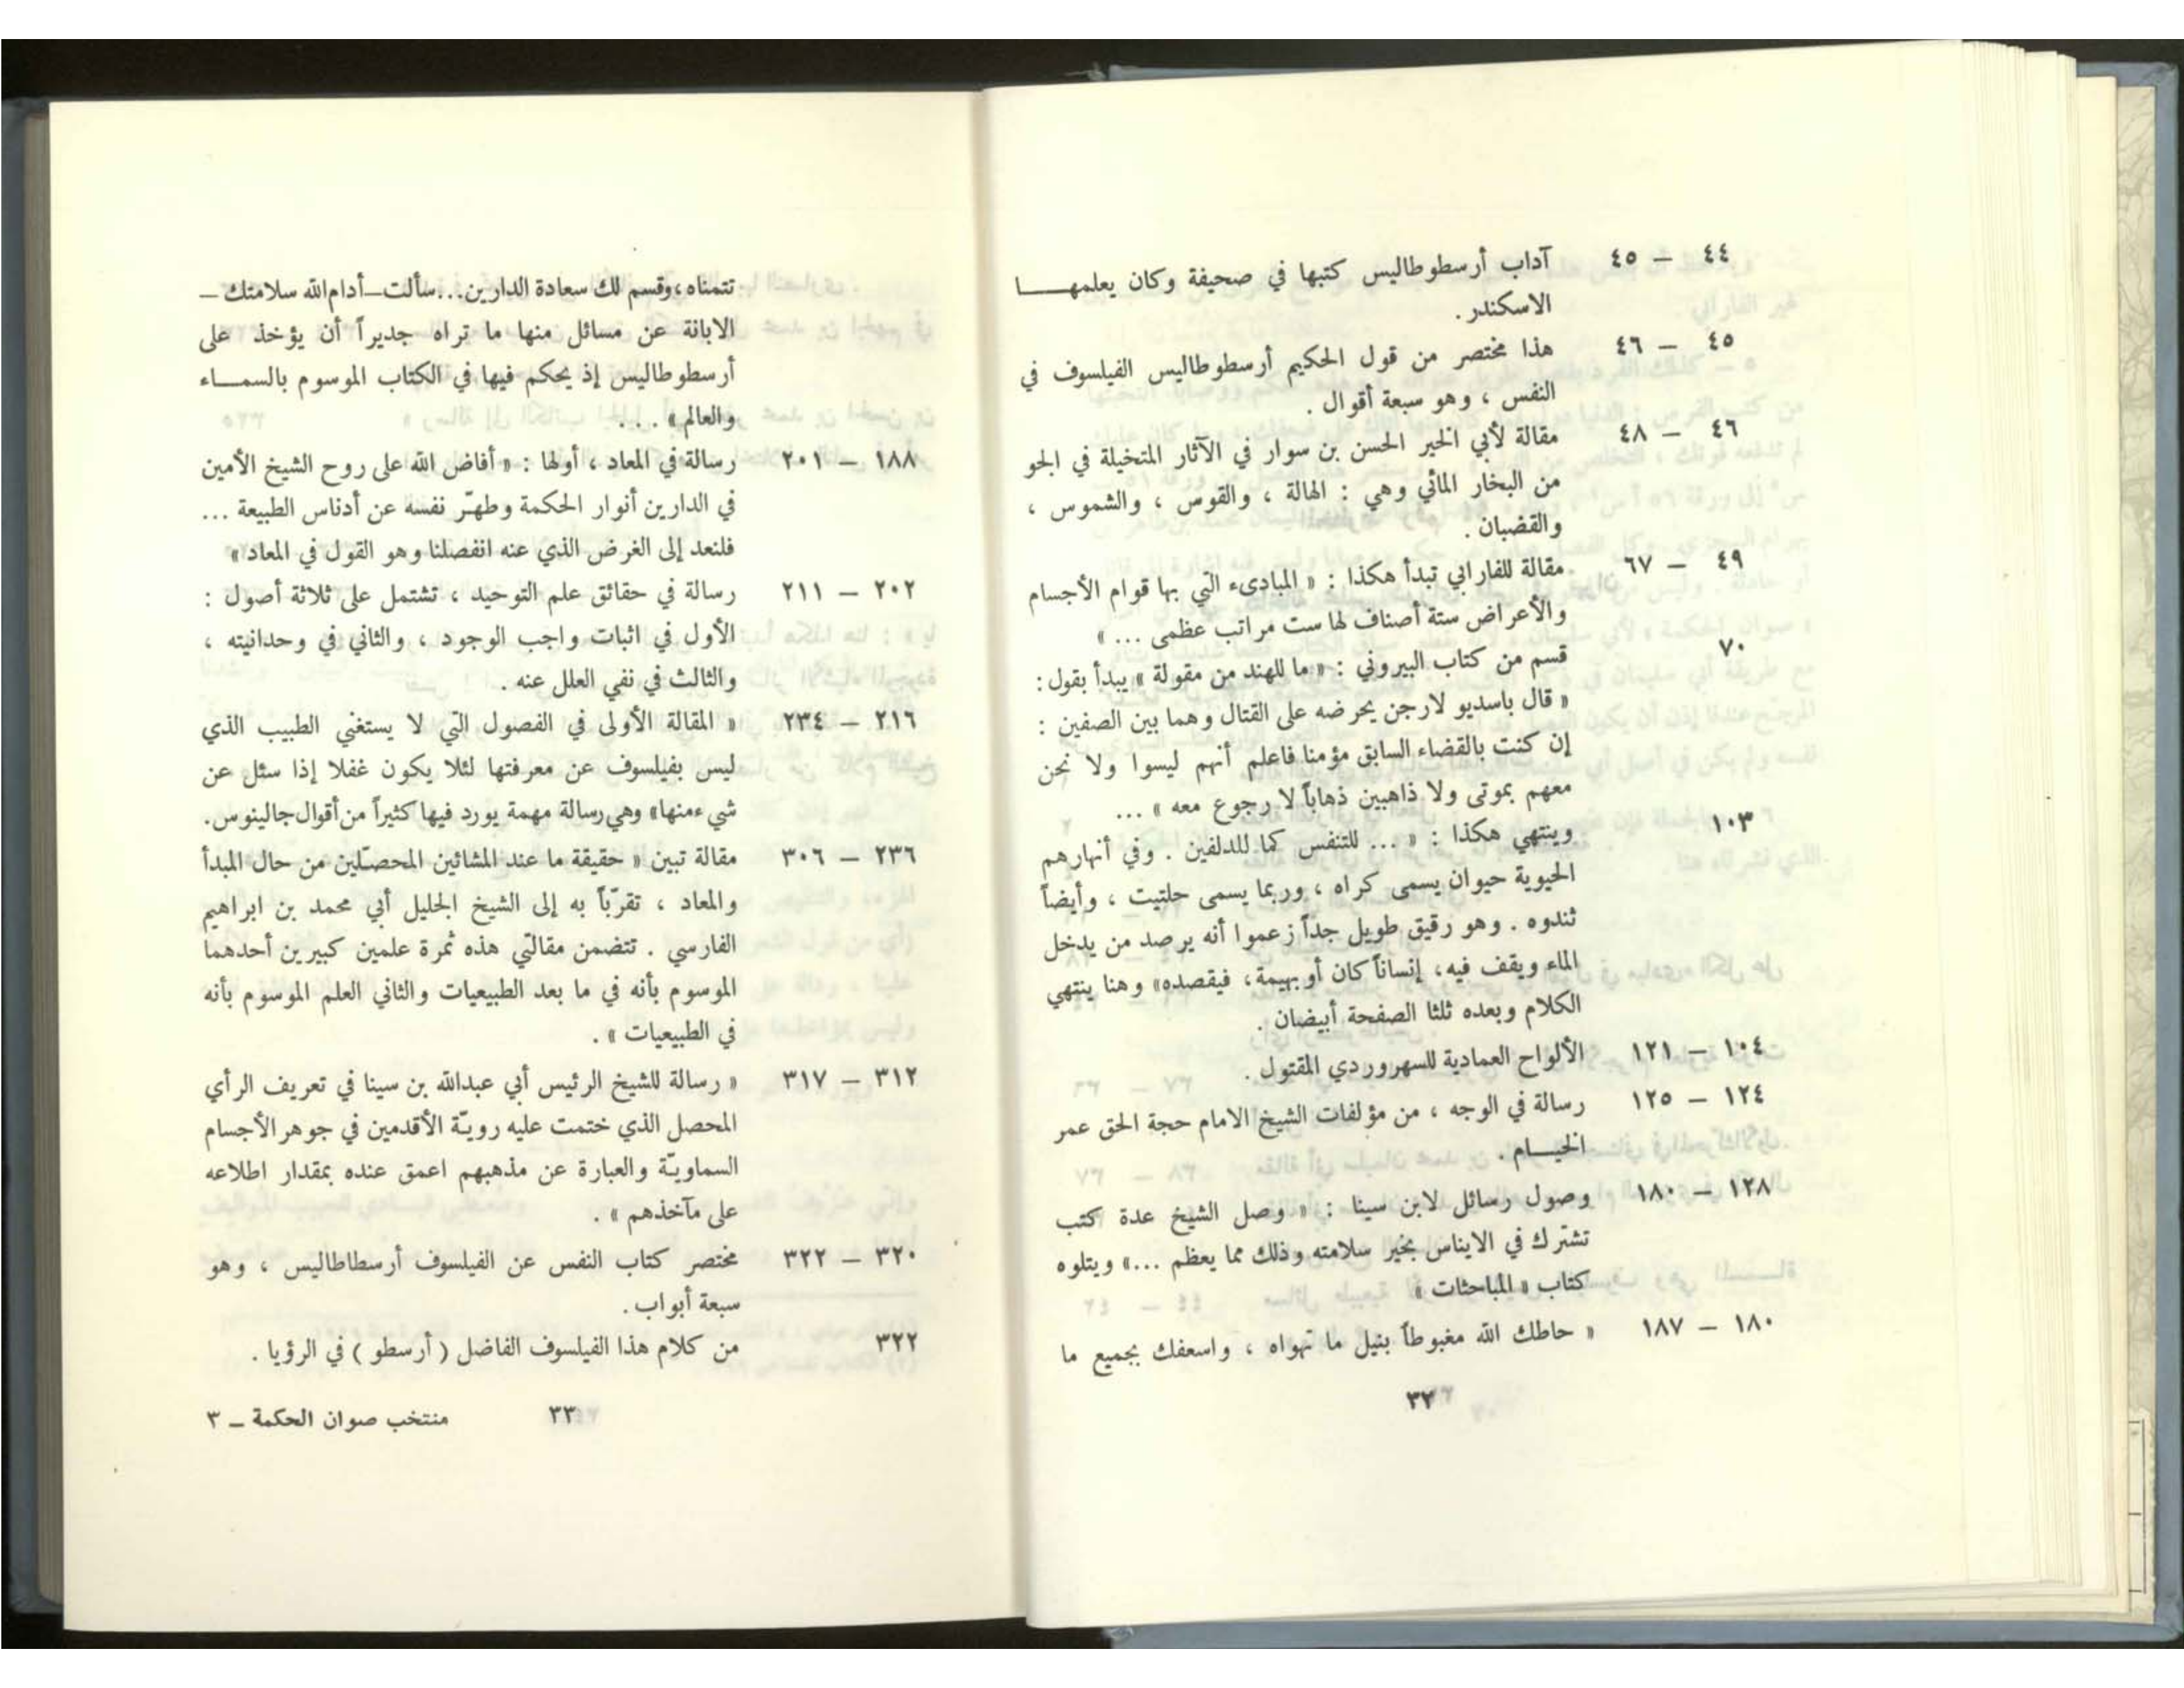 ٤٤ – ٤٥ آداب أرسطوطاليس كتبها في صحيفة وكان يعلمهـــا
الاسكندر .
٤٥ – ٤٦ هذا مختصر من قول الحكيم أرسطوطاليس الفيلسوف في
النفس ، وهو سبعة أقوال .
٤٦ – ٤٨ مقالة لأبي الخير الحسن بن سوار في الآثار المتخيلة في الجو
من البخار المائي وهي : الهالة ، والقوس ، والشموس ،
والقضبان .
٤٩ – ٦٧ مقالة للفارابي تبدأ هكذا : « المبادىء التي بها قوام الأجسام
والأعراض ستة أصناف لها ست مراتب عظمى ... »
٧٠ قسم من كتاب البيروني : « ما للهند من مقولة » يبدأ بقول :
« قال باسديو لارجن يحرضه على القتال وهما بين الصفين :
إن كنت بالقضاء السابق مؤمنا فاعلم أنهم ليسوا ولا نحن
معهم بموتى ولا ذاهبين ذهاباً لا رجوع معه » ...
١٠٣ وينتهي هكذا : « ... للتنفس كما للدلفين . وفي أنهارهم
الحيوية حيوان يسمى كراه ، وربما يسمى حلتيت ، وأيضاً
ثندوه . وهو رقيق طويل جداً زعموا أنه يرصد من يدخل
الماء ويقف فيه، إنساناً كان أو بهيمة، فيقصده» وهنا ينتهي
الكلام وبعده ثلثا الصفحة أبيضان .
١٠٤ – ١٢١ الألواح العمادية للسهروردي المقتول .
١٢٤ – ١٢٥ رسالة في الوجه ، من مؤلفات الشيخ الامام حجة الحق عمر
الخيـــام .
١٢٨ – ١٨٠ وصول رسائل لابن سينا : « وصل الشيخ عدة كتب
تشترك في الايناس بخير سلامته وذلك مما يعظم ...» ويتلوه
كتاب « المباحثات »
١٨٠ – ١٨٧ « حاطك الله مغبوطاً بنيل ما تهواه ، واسعفك بجميع ما
٣٢
تتمناه،وقسم لك سعادة الدارين...سألت–أدام الله سلامتك –
الابانة عن مسائل منها ما تراه جديراً أن يؤخذ على
أرسطوطاليس إذ يحكم فيها في الكتاب الموسوم بالسمـــاء
والعالم » . . .
١٨٨ – ٢٠١ رسالة في المعاد ، أولها : « أفاض الله على روح الشيخ الأمين
في الدارين أنوار الحكمة وطهّر نفسه عن أدناس الطبيعة ...
فلنعد إلى الغرض الذي عنه انفصلنا وهو القول في المعاد »
٢٠٢ – ٢١١ رسالة في حقائق علم التوحيد ، تشتمل على ثلاثة أصول :
الأول في اثبات واجب الوجود ، والثاني في وحدانيته ،
والثالث في نفي العلل عنه .
٢١٦ – ٢٣٤ « المقالة الأولى في الفصول التي لا يستغني الطبيب الذي
ليس بفيلسوف عن معرفتها لئلا يكون غفلا إذا سئل عن
شيء منها» وهي رسالة مهمة يورد فيها كثيراً من أقوال جالينوس.
٢٣٦ – ٣٠٦ مقالة تبين « حقيقة ما عند المشائين المحصّلين من حال المبدأ
والمعاد ، تقرّباً به إلى الشيخ الجليل أبي محمد بن ابراهيم
الفارسي . تتضمن مقالتي هذه ثمرة علمين كبيرين أحدهما
الموسوم بأنه في ما بعد الطبيعيات والثاني العلم الموسوم بأنه
في الطبيعيات » .
٣١٢ – ٣١٧ « رسالة للشيخ الرئيس أبي عبدالله بن سينا في تعريف الرأي
المحصل الذي ختمت عليه رويّة الأقدمين في جوهر الأجسام
السماويّة والعبارة عن مذهبهم اعمق عنده بمقدار اطلاعه
على مآخذهم » .
٣٢٠ – ٣٢٢ مختصر كتاب النفس عن الفيلسوف أرسطاطاليس ، وهو
سبعة أبواب .
٣٢٢ من كلام هذا الفيلسوف الفاضل ( أرسطو ) في الرؤيا .
٣٣ منتخب صوان الحكمة – ٣